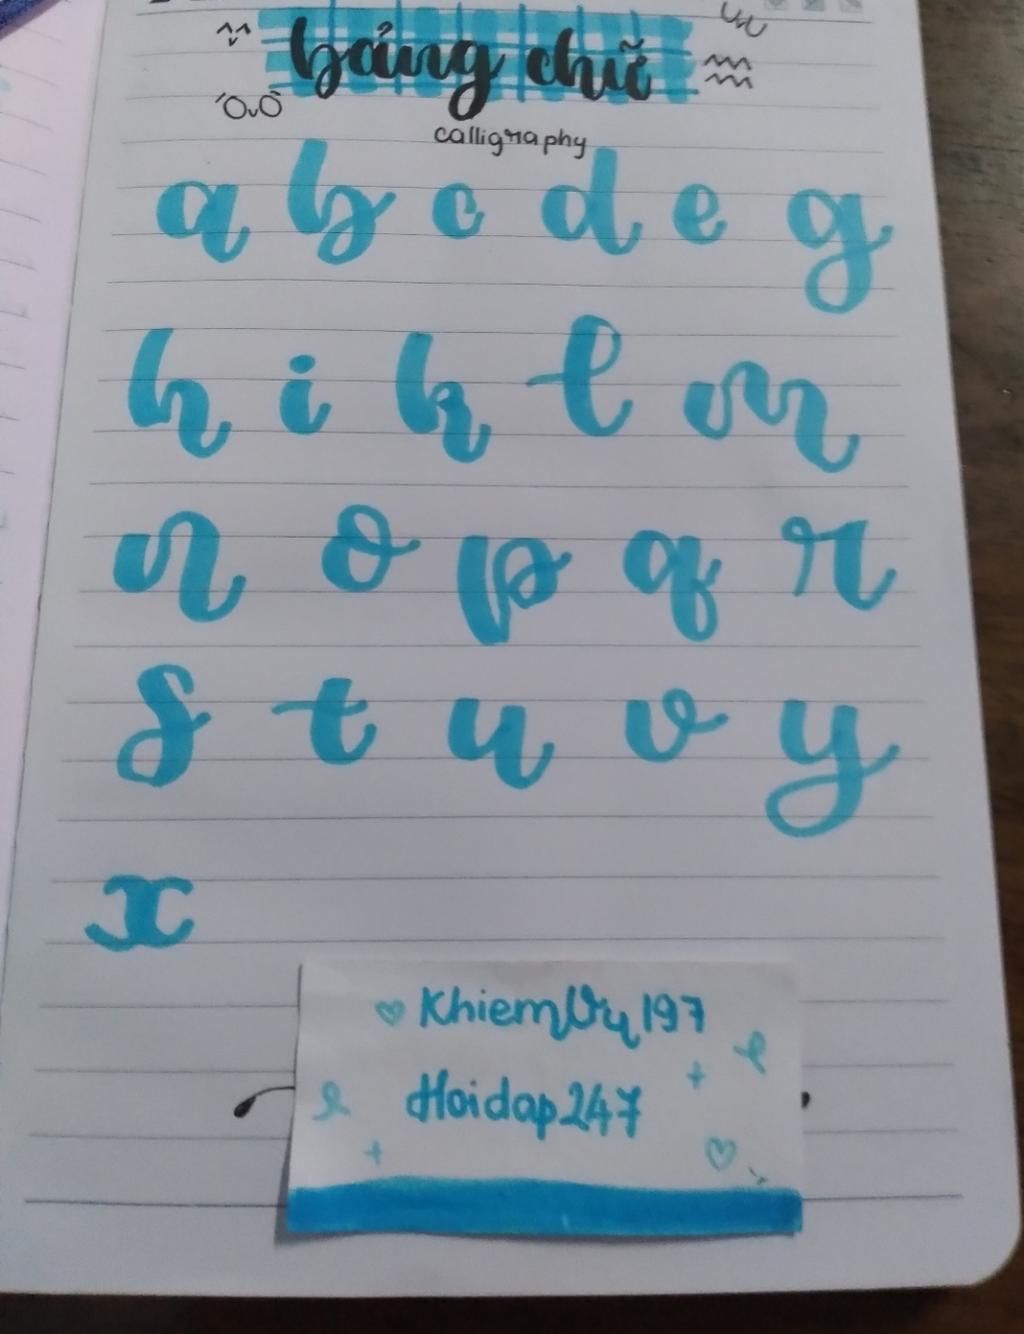 bảng chữ
calligraphy
a b c d e g
h i k l m
n o p q r
s t u v y
x
KhiemVu197
Hoidap247